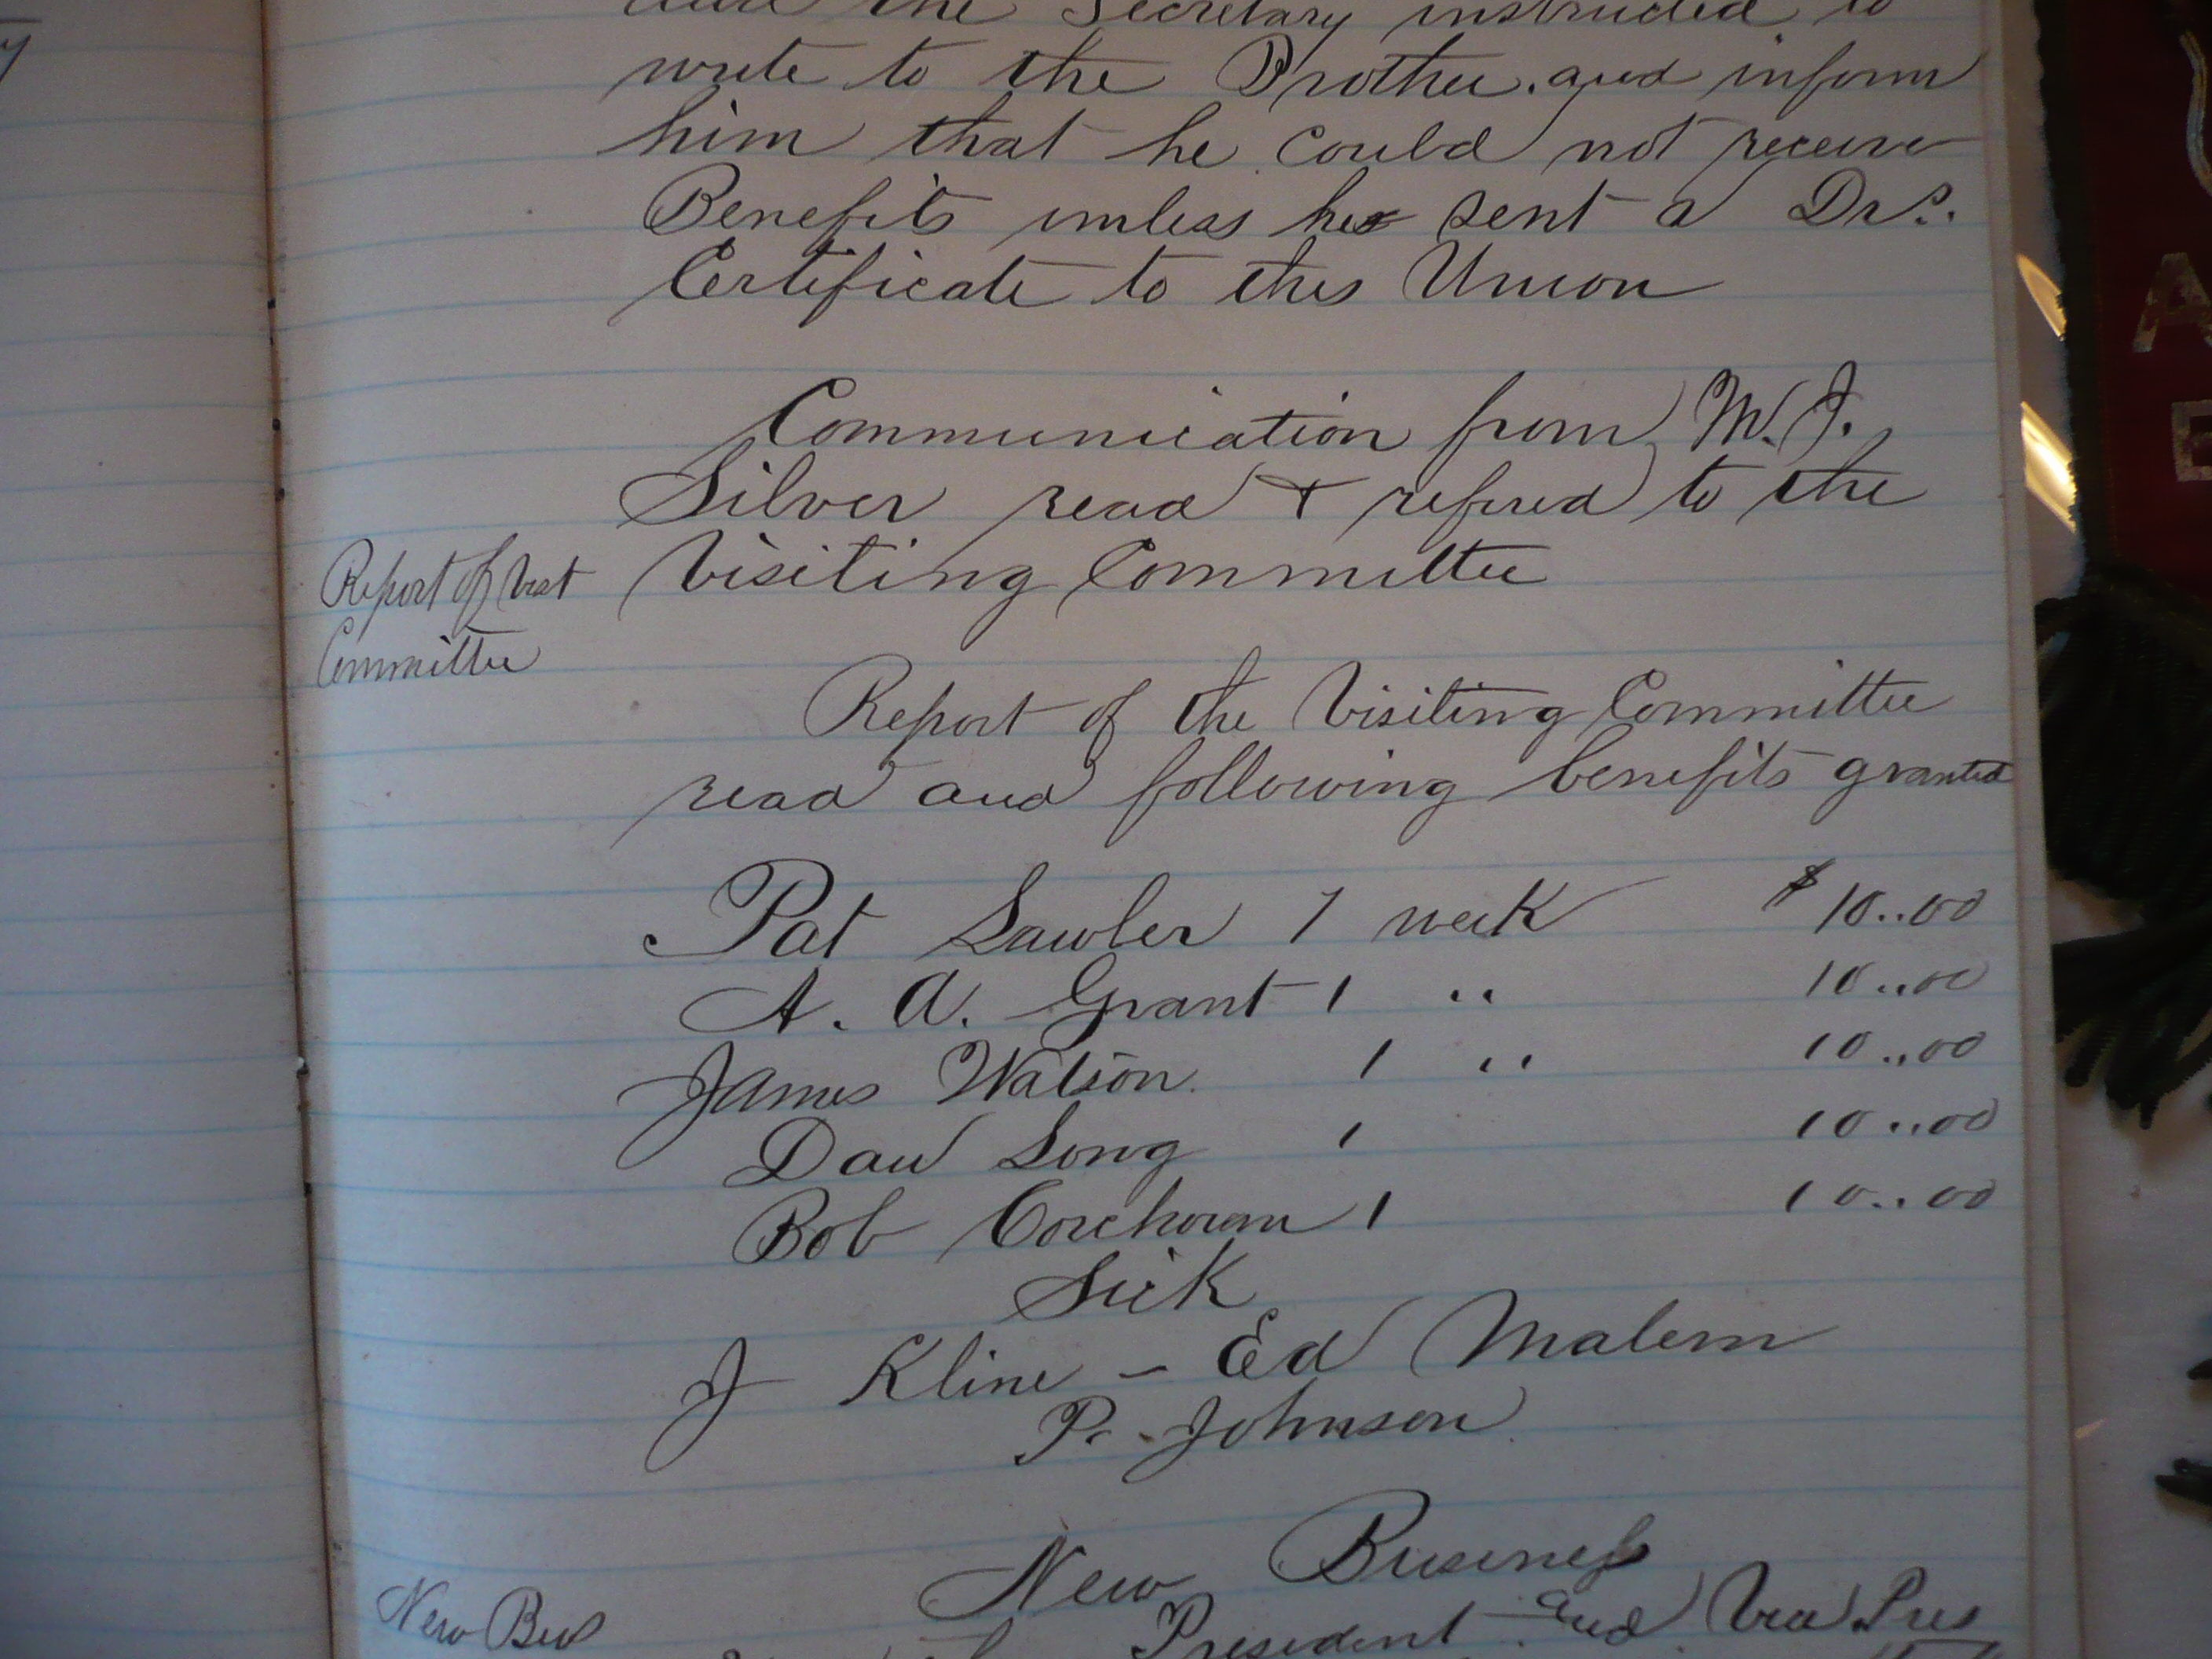 the Secretary instructed to
write to the Brother. and inform
him that he could not receive
Benefits unless he sent a Drs.
Certificate to this Union
Communication from M. J.
Silver read & refered to the
Visiting Committee
Report of Visit
Committee
Report of the Visiting Committee
read and following benefits granted
Pat Lawler 1 week $10..00
A. A. Grant 1 " 10..00
James Watson. 1 " 10..00
Dan Long 1 10..00
Bob Corchoran 1 10..00
Sick
J Kline - Ed Malem
P. Johnson
New Business
New Bus
President and Vice Pres